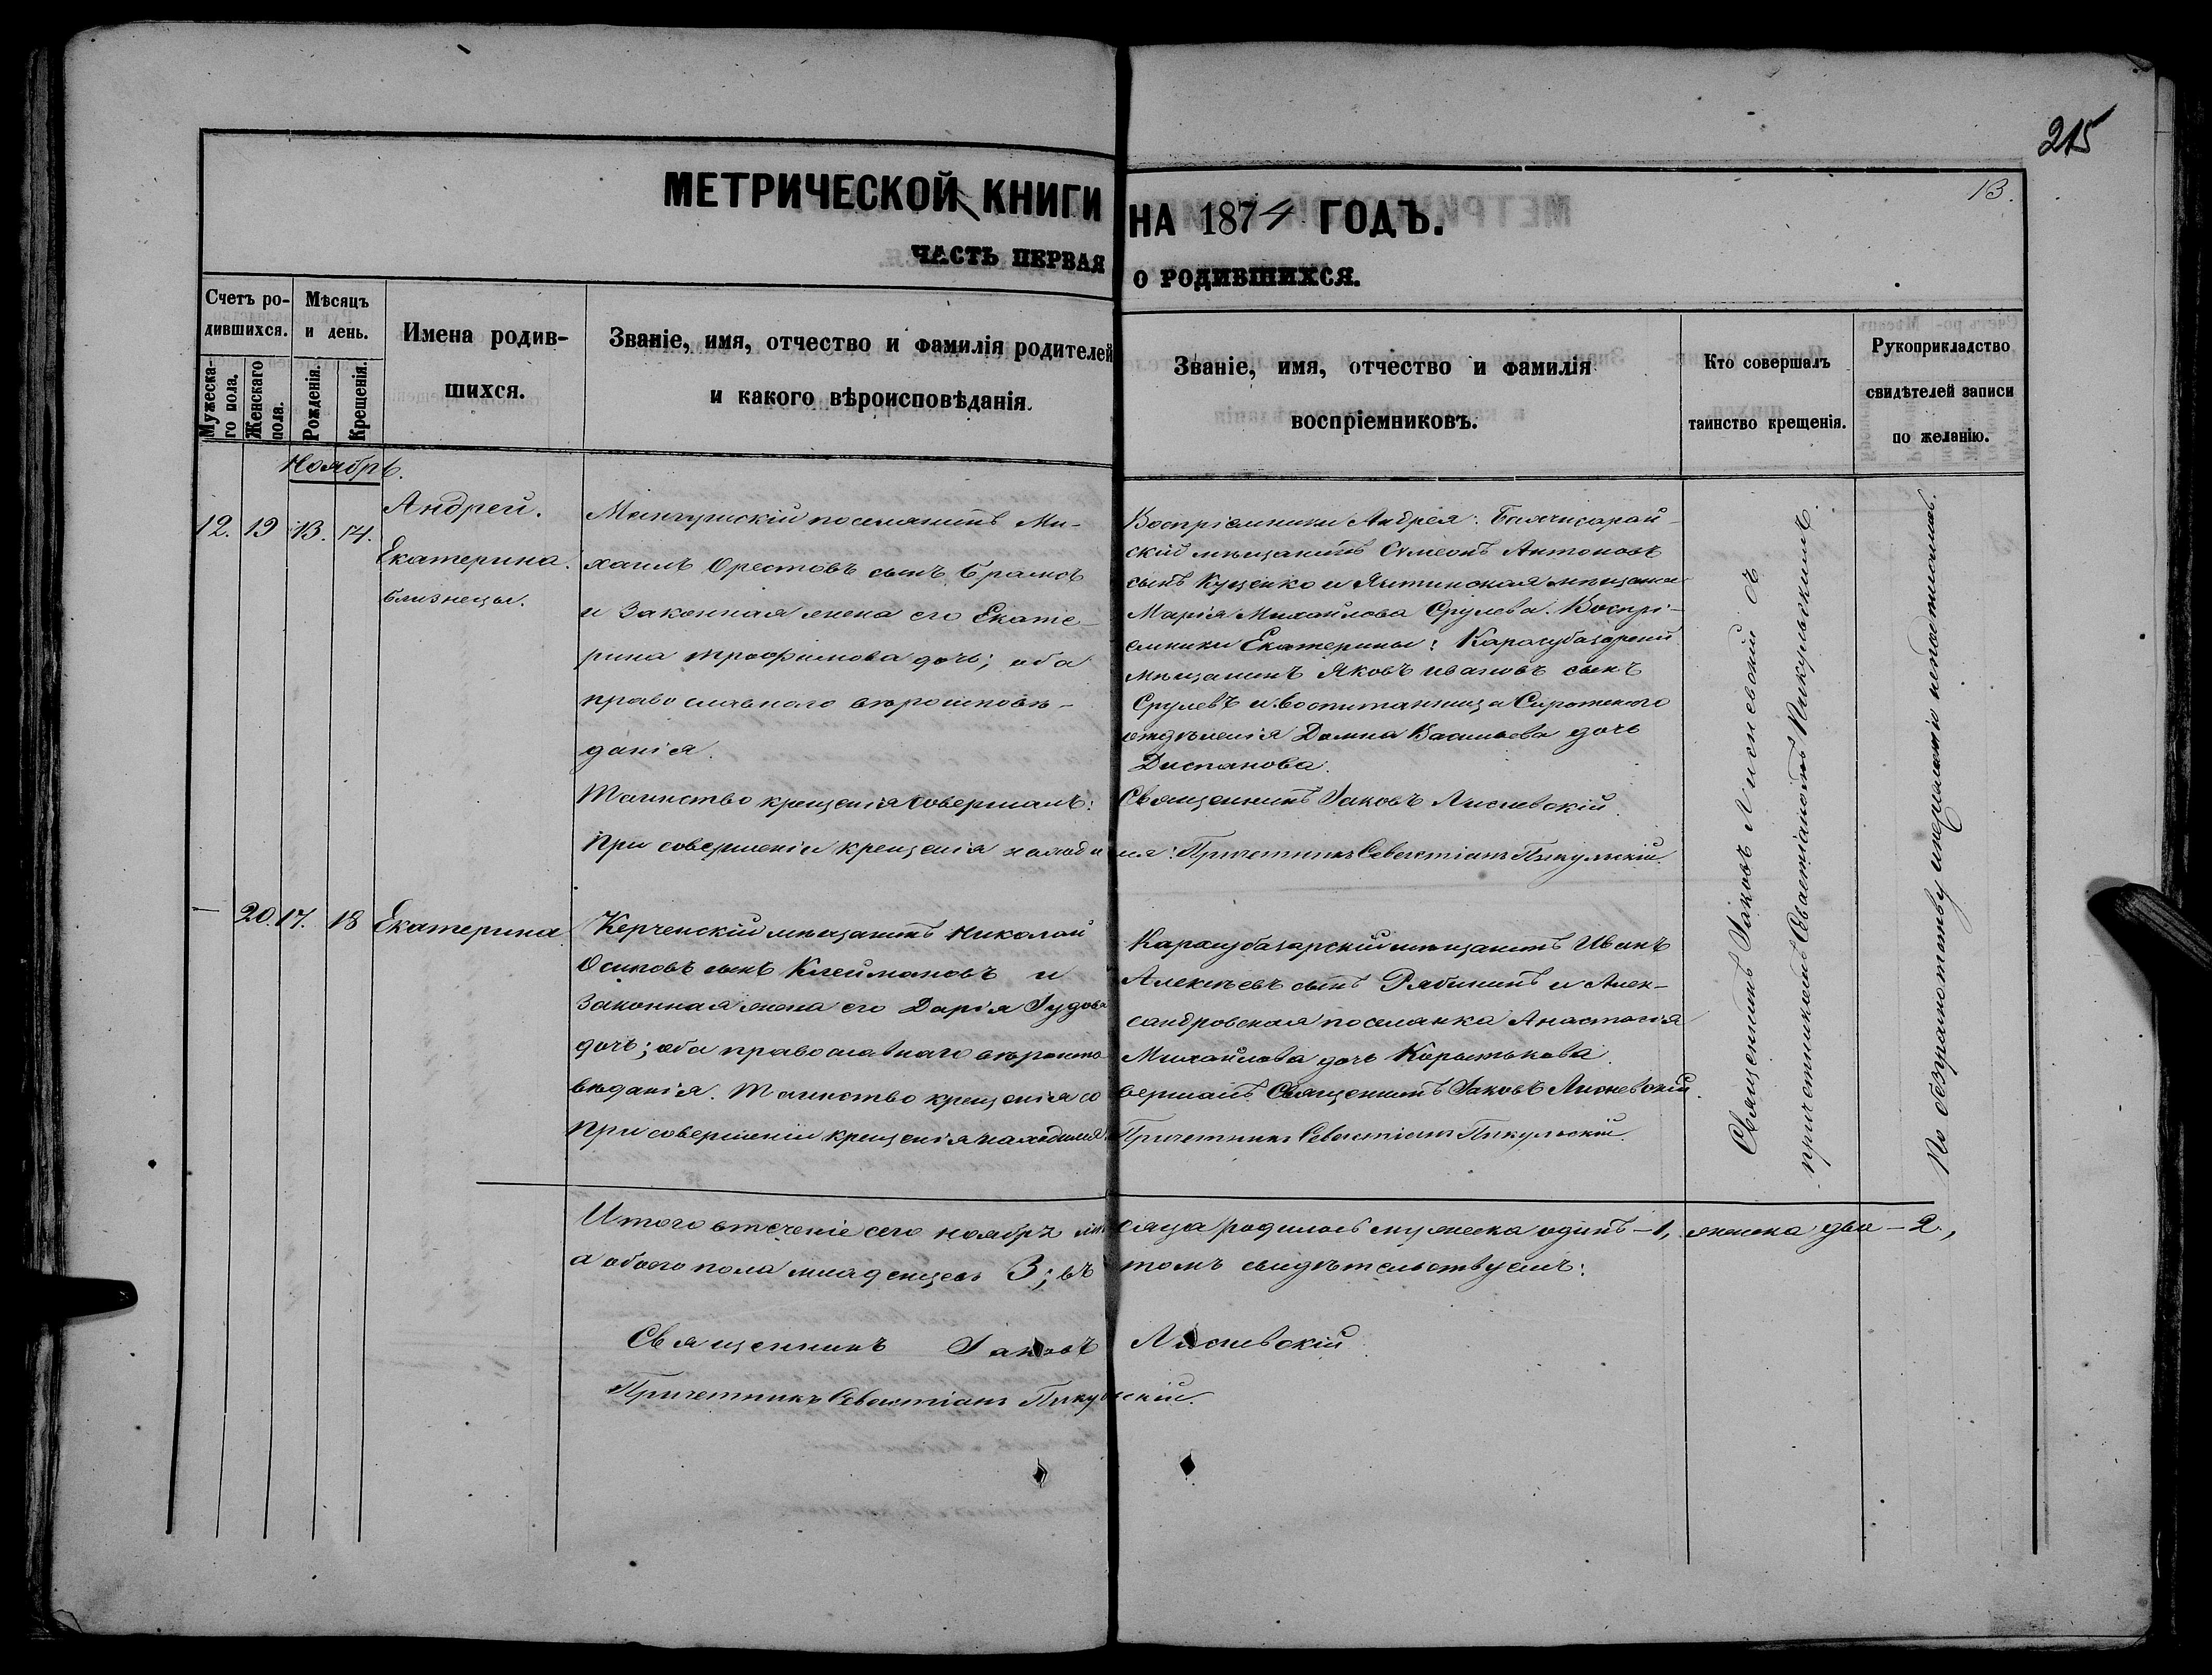 215
13.
МЕТРИЧЕСКОЙ КНИГИ НА 1874 ГОДЪ.
ЧАСТЬ ПЕРВАЯ О РОДИВШИХСЯ.
Счетъ ро-
дившихся.
Мужеска-
го пола.
Женскаго
пола.
Мѣсяцъ
и день.
Рожденія.
Крещенія.
Имена родив-
шихся.
Званіе, имя, отчество и фамилія родителей
и какого вѣроисповѣданія.
Званіе, имя, отчество и фамилія
воспріемниковъ.
Кто совершалъ
таинство крещенія.
Рукоприкладство
свидѣтелей записи
по желанію.
Ноябрь.
12. 19 13. 14.
Андрей.
Екатерина.
близнецы.
Мангушскій поселянинъ Ми-
хаилъ Орестовъ сынъ
и законная жена его Екате-
рина Трофимова дочь; оба
православнаго вѣроисповѣ-
данія.
Таинство крещенія совершалъ:
При совершеніи крещенія находи
Воспріемники Андрея: Бахчисарай-
скій мѣщанинъ Сѵмеонъ Антоновъ
сынъ Куценко и Ялтинская мѣщанка
Марія Михайлова Срулева. Воспрі-
емники Екатерины: Карасубазарскій
мѣщанинъ Яковъ Ивановъ сынъ
Срулевъ и воспитанница Сиротскаго
отдѣленія Домна Васильева дочь
Диспанова.
Священникъ Іаковъ Лисневскій.
лся: Причетникъ Севастіанъ Пикульскій.
— 20. 17. 18 Екатерина.
Керченскій мѣщанинъ Николай
Осиповъ сынъ Клеймановъ и
законная жена его Дарія Іудова
дочь; оба православнаго вѣроиспо-
вѣданія. Таинство крещенія со
При совершеніи крещенія находился
Карасубазарскій мѣщанинъ Иванъ
Алексѣевъ сынъ Рябининъ и Алек-
сандровская поселянка Анастасія
Михайлова дочь Корытькова.
вершалъ Священникъ Іаковъ Лисневскій.
Причетникъ Севастіанъ Пикульскій.
Священникъ Іаковъ Лисневскій съ
причетникомъ Севастіаномъ Пикульскимъ.
По безграмотству unidos не подписались.
Итого втеченіе сего ноябрь мѣсяца родилось мужеска одинъ – 1, женска два – 2,
а обоего пола младенцевъ 3; въ томъ свидѣтельствуемъ:
Священникъ Іаковъ Лисневскій
Причетникъ Севастіанъ Пикульскій.